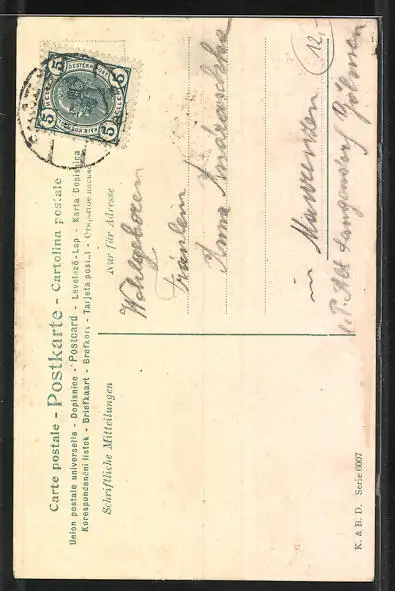 Carte postale - Postkarte - Cartolina postale
Union postale universelle - Dopisnice - Postcard - Levelező-Lap - Karta Dopisnica
Korespondenční lístek - Briefkaart - Brefkort - Tarjeta postal - Открытое письмо
Schriftliche Mitteilungen
Nur für Adresse
5 5
OESTERR.
5 5
12.-
Wohlgeboren
Fräulein
Anna
in
P. Alt Langendorf Böhmen
K. & B. D. Serie 6007